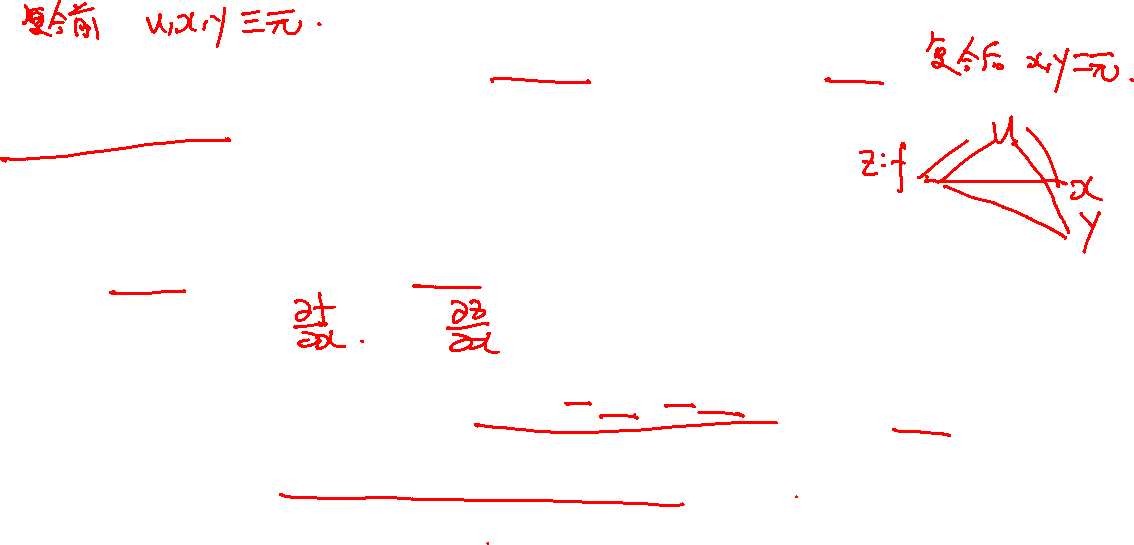 复合前 u,x,y 三元.
复合后 x,y 二元.
u
z=f
x
y
∂f/∂x . ∂z/∂x